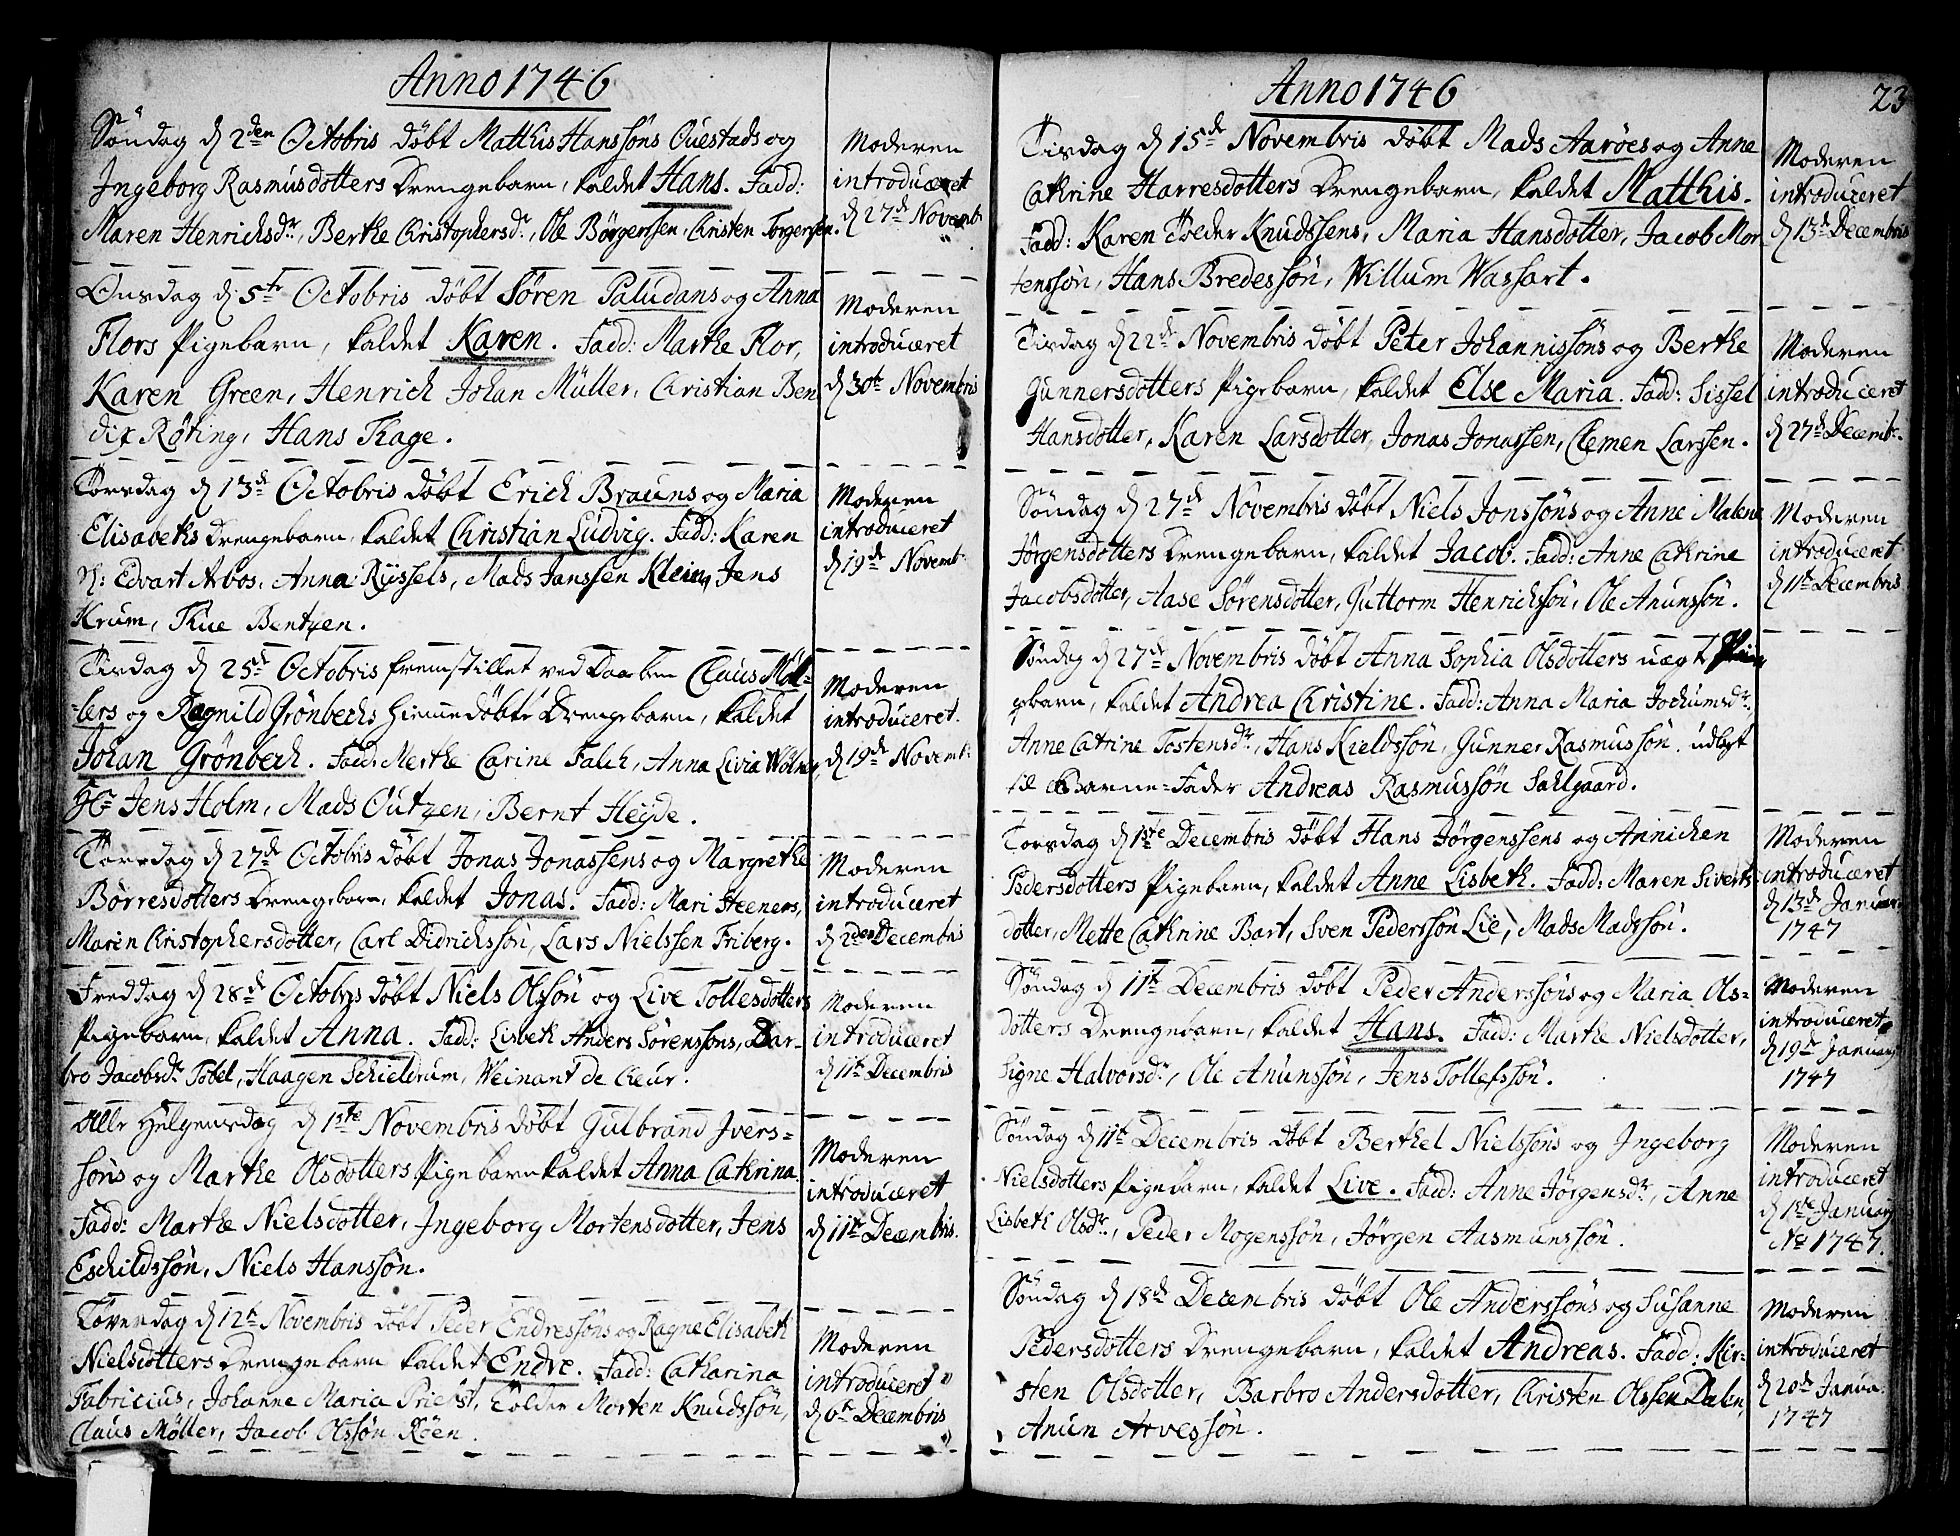 Anno 1746
Søndag d 2den Octobris døbt Matthis Hanssøns Questads og
Ingeborg Rasmusdotters Drengebarn, kaldet Hans. Fadd:
Maren Henrichsdr, Berthe Christophersdr, Ole Børgerssen, Christen Torgerssen.
Moderen
introduceret
d 27d Novemb:
Onsdag d 5te Octobris døbt Søren Paludans og Anna
Flors Pigebarn, kaldet Karen. Fadd: Marthe Flor,
Karen Green, Henrich Johan Müller, Christian Ben
dix Røting, Hans Thage.
Moderen
introduceret
d 30te Novembris
Torsdag d 13de Octobris døbt Erich Brauns og Maria
Elisabeths Drengebarn, kaldet Christian Ludvig. Fadd: Karen
Edvart Abos, Anna Ryssels, Mads Janssen Klein, Jens
Krum, Thue Bentzen.
Moderen
introduceret
d 19de Novemb:
Tisdag d 25de Octobris fremstillet ved Daaben Claus Møl-
-lers og Ragnild Grønbechs hiemmedøbte Drengebarn, kaldet
Johan Grønbech. Fadd: Merthe Carine Falch, Anna Livia Wølner,
Hr Jens Holm, Mads Outzen, Bernt Heyde.
Moderen
introduceret.
d 19de Novemb:
Torsdag d 27de Octobris døbt Jonas Jonassens og Margrethe
Børresdotters Drengebarn, kaldet Jonas. Fadd: Mari Steeners,
Maren Christophersdotter, Carl Didrichssøn, Lars Nielssen Friberg.
Moderen
introduceret
d 2den Decembris
Freddag d 28de Octobris døbt Niels Olssøn og Live Tollesdotters
Pigebarn, kaldet Anna. Fadd: Lisbeth Anders Sørenssøns, Bar-
bro Jacobsdr Tobel, Haagen Schieldrum, Weinant de Cleur.
Moderen
introduceret
d 11te Decembris
Alle Helgensdag d 1ste Novembris døbt Gulbrand Ivers-
søns og Marthe Olsdotters Pigebarn kaldet Anna Cathrina.
Fadd: Marthe Nielsdotter, Ingeborg Mortensdotter, Jens
Eschildssøn, Niels Hanssøn.
Moderen
introduceret
d 11te Decembris.
Løverdag d 12te Novembris døbt Peder Endressøns og Ragne Elisabeth
Nielsdotters Drengebarn kaldet Endre. Fadd: Catharina
Fabricius, Johanne Maria Priebst, Tolder Morten Knudssøn,
Claus Møller, Jacob Olssøn Røen.
Moderen
introduceret
d 6te Decembris
23
Anno 1746
Tisdag d 15de Novembris døbt Mads Aarøes og Anne
Cathrine Harresdotters Drengebarn, kaldet Matthis.
Fadd: Karen Tolder Knudssens, Maria Hansdotter, Jacob Mor
tenssøn, Hans Bredessøn, Willum Wassart.
Moderen
introduceret
d 13de Decembris
Tisdag d 22de Novembris døbt Peter Johannissøns og Berthe
Gunnersdotters Pigebarn, kaldet Else Maria. Fadd: Sissel
Hansdotter, Karen Larsdotter, Jonas Jonassen, Clemen Larssen.
Moderen
introduceret
d 27de Decemb:
Søndag d 27de Novembris døbt Niels Jonssøns og Anne Malene
Jørgensdotters Drengebarn, kaldet Jacob. Fadd: Anne Cathrine
Jacobsdotter, Aase Sørensdotter, Guttorm Henrichssøn, Ole Anunssøn.
Moderen
introduceret
d 11te Decembris
Søndag d 27de Novembris døbt Anna Sophia Olsdotters uægt Pi
gebarn, kaldet Andrea Christine. Fadd: Anna Maria Jochumsdr,
Anne Catrine Tostensdr, Hans Kieldssøn, Gunner Rasmussøn. udlagt
til Barne-Fader Andreas Rasmussøn Sahlgaard.
Torsdag d 1ste Decembris døbt Hans Jørgenssens og Annichen
Pedersdotters Pigebarn, kaldet Anne Lisbeth. Fadd: Maren Siverts-
dotter, Mette Cathrine Bart, Sven Pederssøn Lie, Mads Madssøn.
Moderen
introduceret
d 13de Januar:
1747
Søndag d 11te Decembris døbt Peder Anderssøns og Maria Ols-
dotters Drengebarn, kaldet Hans. Fadd: Marthe Nielsdotter,
Signe Halvorsdr, Ole Anunssøn, Jens Tollefssøn.
Moderen
introduceret
d 19de Januarj
1747
Søndag d 11te Decembris døbt Berthel Nielssøns og Ingeborg
Nielsdotters Pigebarn, kaldet Live. Fadd: Anne Jørgensdr, Anne
Lisbeth Olsdr, Peder Mogenssøn, Jørgen Aasmunssøn.
Moderen
introduceret
d 1ste Januarj
Ao 1747.
Søndag d 18de Decembris døbt Ole Anderssøns og Susanne
Pedersdotters Drengebarn, kaldet Andreas. Fadd: Kir-
sten Olsdotter, Barbro Andersdotter, Christen Olssen Dalen,
Anun Arvessøn.
Moderen
introduceret
d 20de Janua:
1747